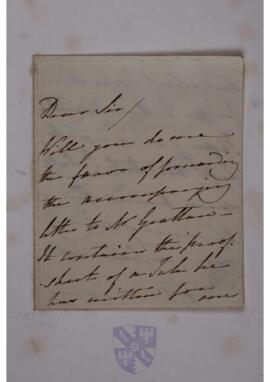 Dear Sir/
Will you do me
the favor of forwarding
the accompanying
letter to Mr Grattan –
It contains the proof
sheet of a Tale he
has written for me